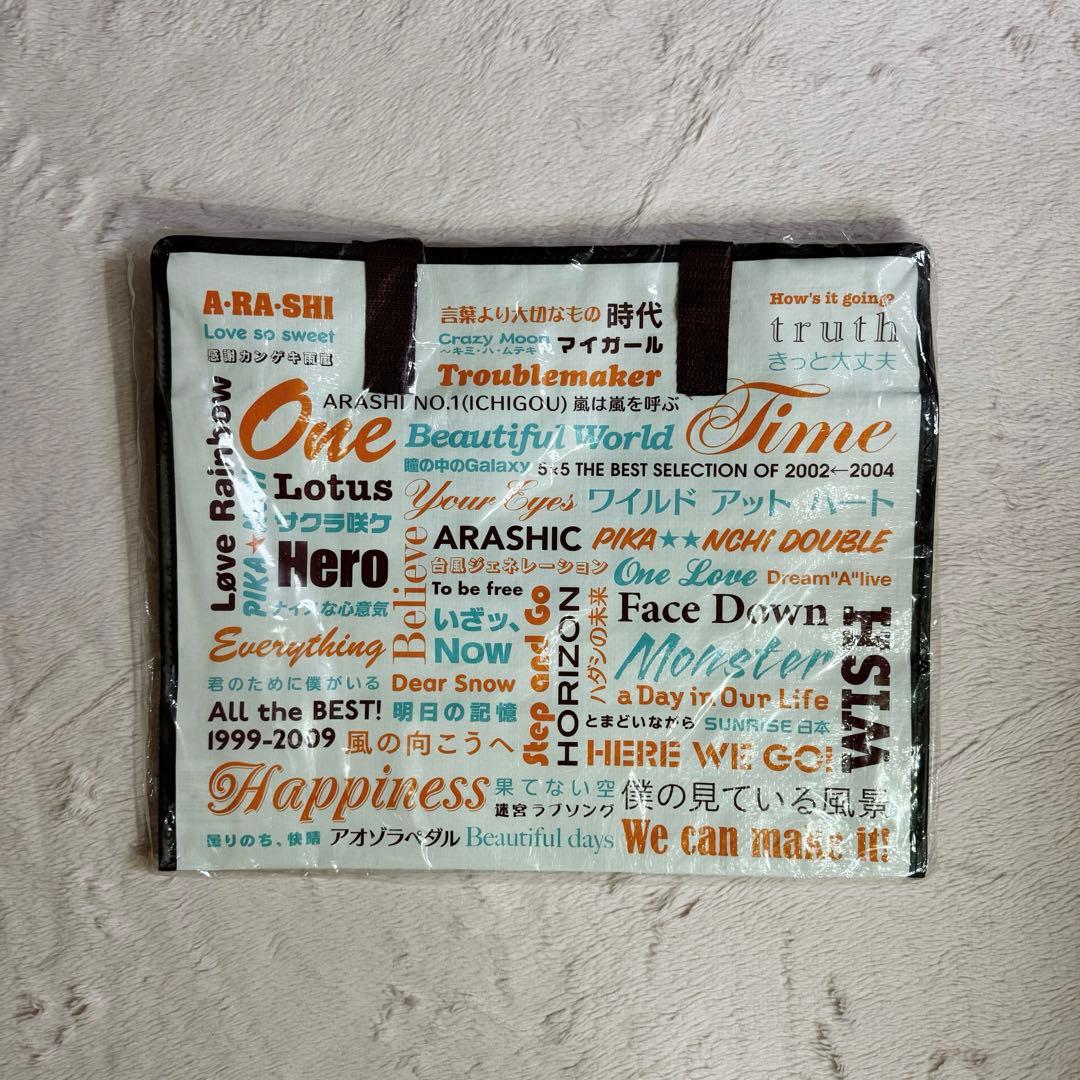 A・RA・SHI
Love so sweet
感謝カンゲキ雨嵐
言葉より大切なもの 時代
Crazy Moon
～キミ・ハ・ムテキ
マイガール
Troublemaker
How's it going?
truth
きっと大丈夫
ARASHI NO.1(ICHIGOU) 嵐は嵐を呼ぶ
One
Beautiful World
Time
瞳の中のGalaxy
5×5 THE BEST SELECTION OF 2002←2004
Løve Rainbow
PIKA★
Lotus
サクラ咲ケ
Hero
ナイスな心意気
Your Eyes
ワイルド アット ハート
Believe
ARASHIC
PIKA★★NCHI DOUBLE
台風ジェネレーション
One Love
Dream"A"live
To be free
いざッ、
Now
Step and Go
HORIZON
ハダシの未来
Face Down
Monster
WISH
Everything
a Day in Our Life
君のために僕がいる
Dear Snow
とまどいながら
SUNRISE 日本
All the BEST!
1999-2009
明日の記憶
風の向こうへ
HERE WE GO!
Happiness
果てない空
迷宮ラブソング
僕の見ている風景
曇りのち、快晴
アオゾラペダル
Beautiful days
We can make it!